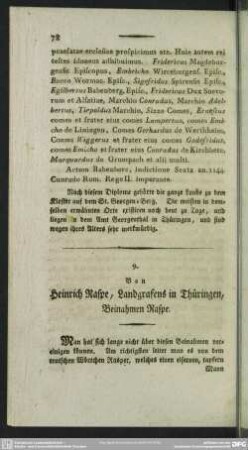 78
praefatae ecclesiae prospicimus etc. Huic autem rei
testes idoneos adhibuimus. Fridericus Magdebur-
gensis Episcopus, Embricho Wirceburgensf. Episc.,
Bucco Wormat. Episc., Sigefridus Spirensis Episc.,
Egilbertus Babenberg. Episc., Fridericus Dux Suevo-
rum et Alsatiae, Marchio Conradus, Marchio Adel-
bertus, Marchio, Sizzo Comes,
comes et frater eius comes Lampertus, comes Emi-
cho de Liningen, Comes Gerhardus de Wertheim,
Comes Wiggerus et frater eius Godefridus,
comes Emicho et frater eius Conradus de Kirchberc,
Marquardus de Grumpach et alii multi.
Actum Babenberc, indictione Sexta an. 1144
Conrado Rom. Rege II. imperante.
Nach diesem Diplome gehörte die ganze Leube zu dem
Kloster auf dem St. Georgen-Berg. Die meisten in dem-
selben ernannten Orte existiren noch heut zu Tage, und
liegen in dem Amt Georgenthal in Thüringen, und sind
wegen ihres Alters sehr merkwürdig.
9.
Von
Heinrich Raspe, Landgrafens in Thüringen,
Beinahmen Raspe.
Man hat sich lange nicht über diesen Beinahmen ver-
einigen können. Am richtigsten leitet man es von dem
teutschen Wörtchen Rasper, welches einen eisernen, tapfern
Mann